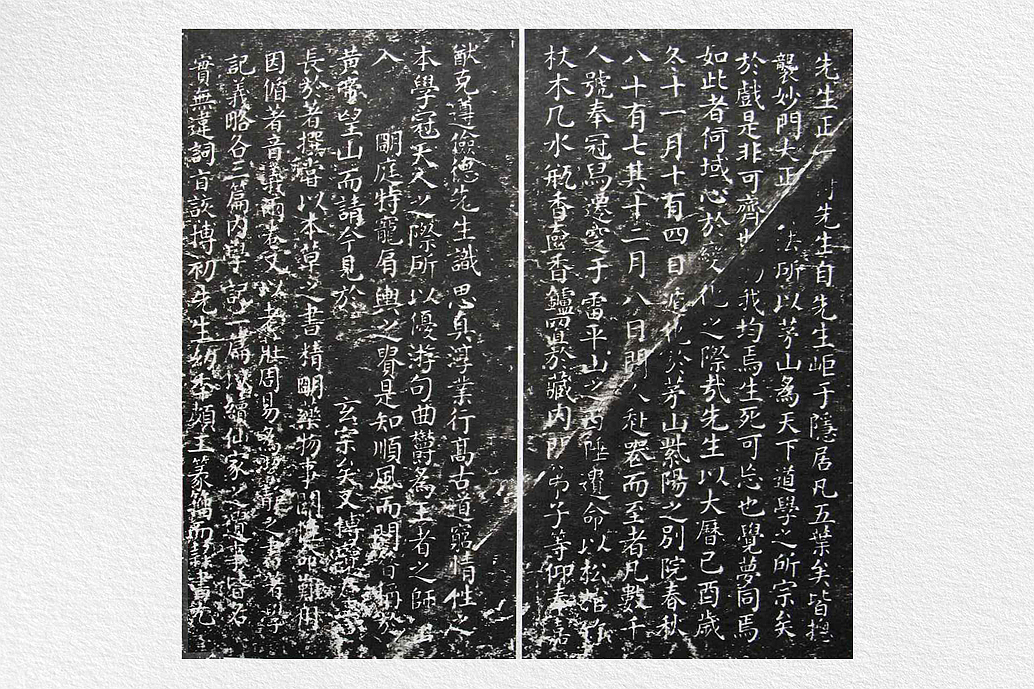 先生正先生自先生岠于隱居凡五葉矣皆摠
襲妙門大正法所以茅山為天下道學之所宗矣
於戲是非可齊我均焉生死可忘也覺夢同焉
如此者何域心於變化之際哉先生以大曆己酉歲
冬十一月十有四日遁化於茅山紫陽之別院春秋
八十有七其十二月八日門人赴喪而至者凡數千
人號奉冠舄遷窆于雷平山之西陲遺命以松棺竹
杖木几水瓶香奩香鑪置於藏內門弟子等仰奉嘉
猷克遵儉德先生識思真淳業行高古道窮情性之
本學冠天人之際所以優游句曲鬱為王者之師出
入 明庭特寵肩輿之貴是知順風而問昔稱於
黃帝望山而請今見於 玄宗矣又博覽
長於著撰嘗以本草之書精明藥物事關性命難用
因循著音義兩卷又以老莊周易為潔靜之書著學
記義略各三篇內學記一篇以續仙家之遺事皆名
實無違詞旨該博初先生幼年頗工篆籀而隸書尤